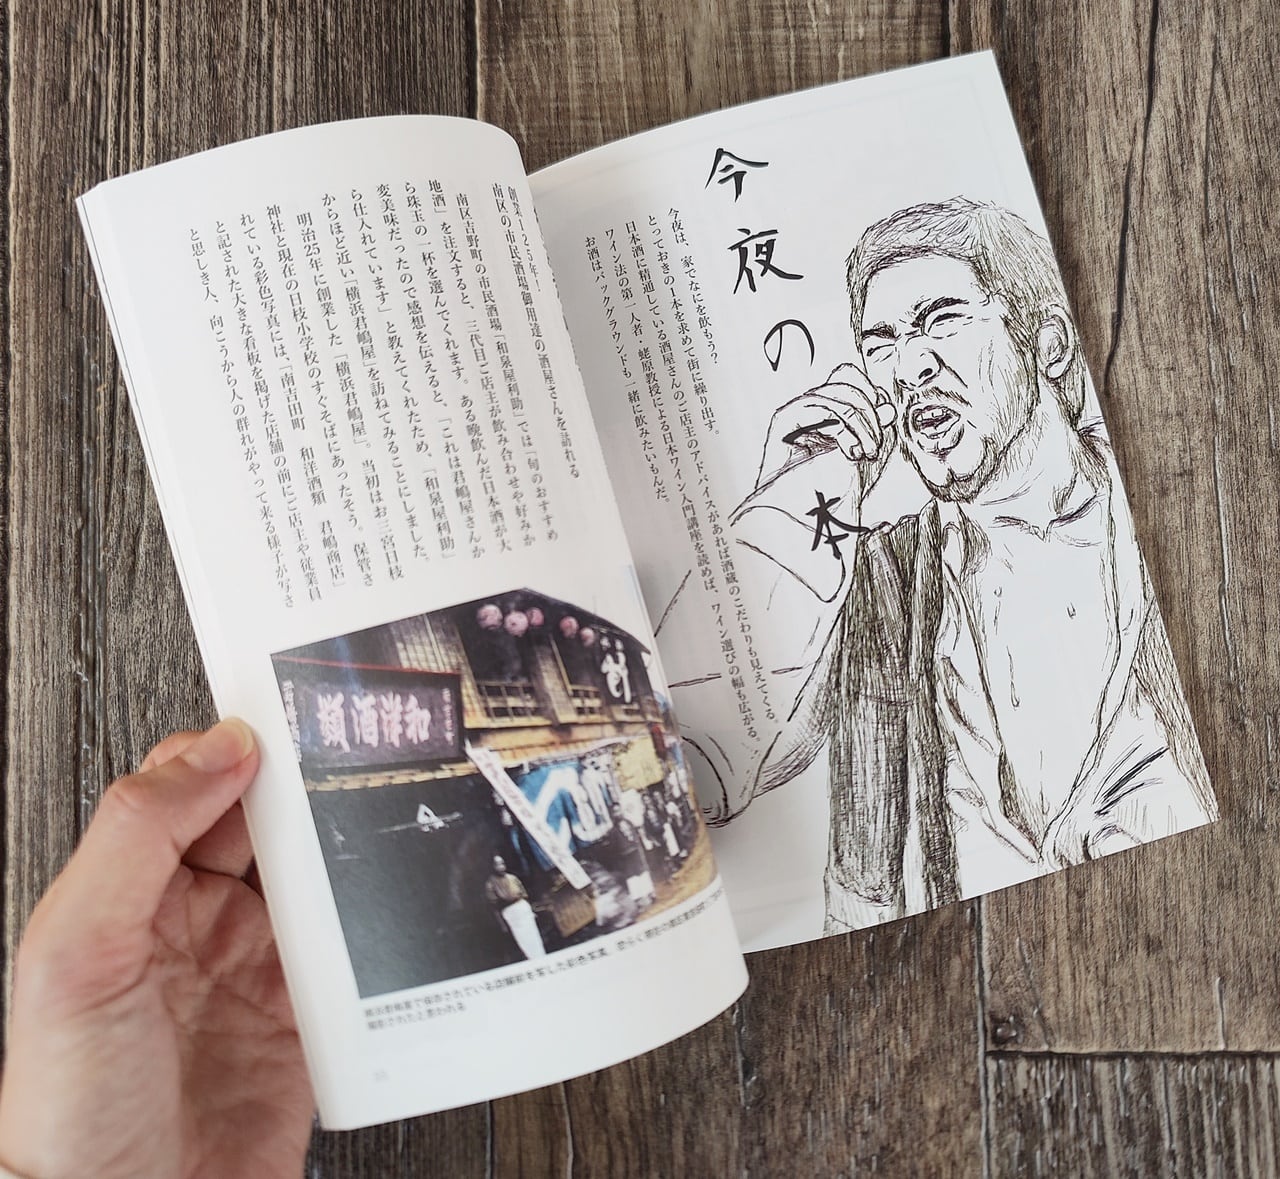 今夜の一本
今夜は、家でなにを飲もう？
とっておきの1本を求めて街に繰り出す。
日本酒に精通している酒屋さんのご店主のアドバイスがあれば酒蔵のこだわりも見えてくる。
ワイン法の第一人者・蛯原教授による日本ワイン入門講座を読めば、ワイン選びの幅も広がる。
お酒はバックグラウンドも一緒に飲みたいもんだ。
創業125年！
南区の市民酒場御用達の酒屋さんを訪れる
南区吉野町の市民酒場「和泉屋利助」では「旬のおすすめ
地酒」を注文すると、三代目ご店主が飲み合わせや好みか
ら珠玉の一杯を選んでくれます。ある晩飲んだ日本酒が大
変美味だったので感想を伝えると、「これは君嶋屋さんか
ら仕入れています」と教えてくれたため、「和泉屋利助」
からほど近い「横浜君嶋屋」を訪ねてみることにしました。
明治25年に創業した「横浜君嶋屋」。当初はお三宮日枝
神社と現在の日枝小学校のすぐそばにあったそう。保管さ
れている彩色写真には、「南吉田町　和洋酒類　君嶋商店」
と記された大きな看板を掲げた店舗の前にご店主や従業員
と思しき人、向こうから人の群れがやって来る様子が写さ
類酒洋和
で保存されている店舗前を写した彩色写真。恐らく現在の南区
撮影されたと思われる